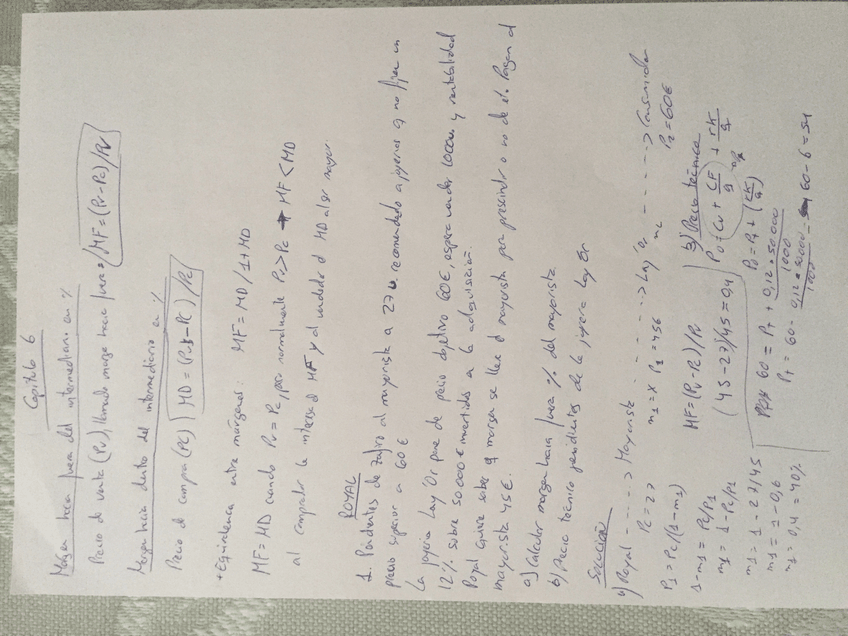 Capítulo 6
Margen hacia fuera del intermediario en %
Precio de venta (Pv) llamado margen hacia fuera → MF = (Pv-Pc)/Pv
Margen hacia dentro del intermediario en %
Precio de compra (PC) MD = (Pv-PC)/Pc
+Equivalencia entre márgenes: MF = MD / 1+MD
MF = MD cuando Pv = Pc, pero normalmente Pv > Pc → MF < MD
al comprador le interesa el MF y al vendedor el MD al ser mayor.
ROYAL
1. Pendientes de zafiro al mayorista a 27 u. recomendado a joyeros q no fijen un
precio superior a 60€
La joyería Lay Or pone de precio objetivo 60€, espera vender 1000 u. y rentabilidad
12% sobre 50.000€ invertidos a la adquisición.
Royal quiere saber q margen se lleva el mayorista por
mayorista 45€.
a) Calcular margen hacia fuera % del mayorista
b) Precio técnico pendientes de la joyería Lay Or
Solución
a) Royal -----> Mayorista -----> Lay Or -----> Consumidor
Pc = 27 m1 = x P1 = 45€ m2 P2 = 60€
P1 = Pc/(1-m1)
1-m1 = Pc/P1
m1 = 1 - Pc/P1
m1 = 1 - 27/45
m1 = 1 - 0,6
m1 = 0,4 = 40%
MF = (Pv-Pc)/Pv
(45-27)/45 = 0,4
b) Precio técnica
Po = Cv + CF/q + rK/q
Po = Pt + (rK/q)
60 = Pt + 0,12 × 50000 / 1000
Pt = 60 - 0,12 × 50000 / 1000 = 60 - 6 = 54